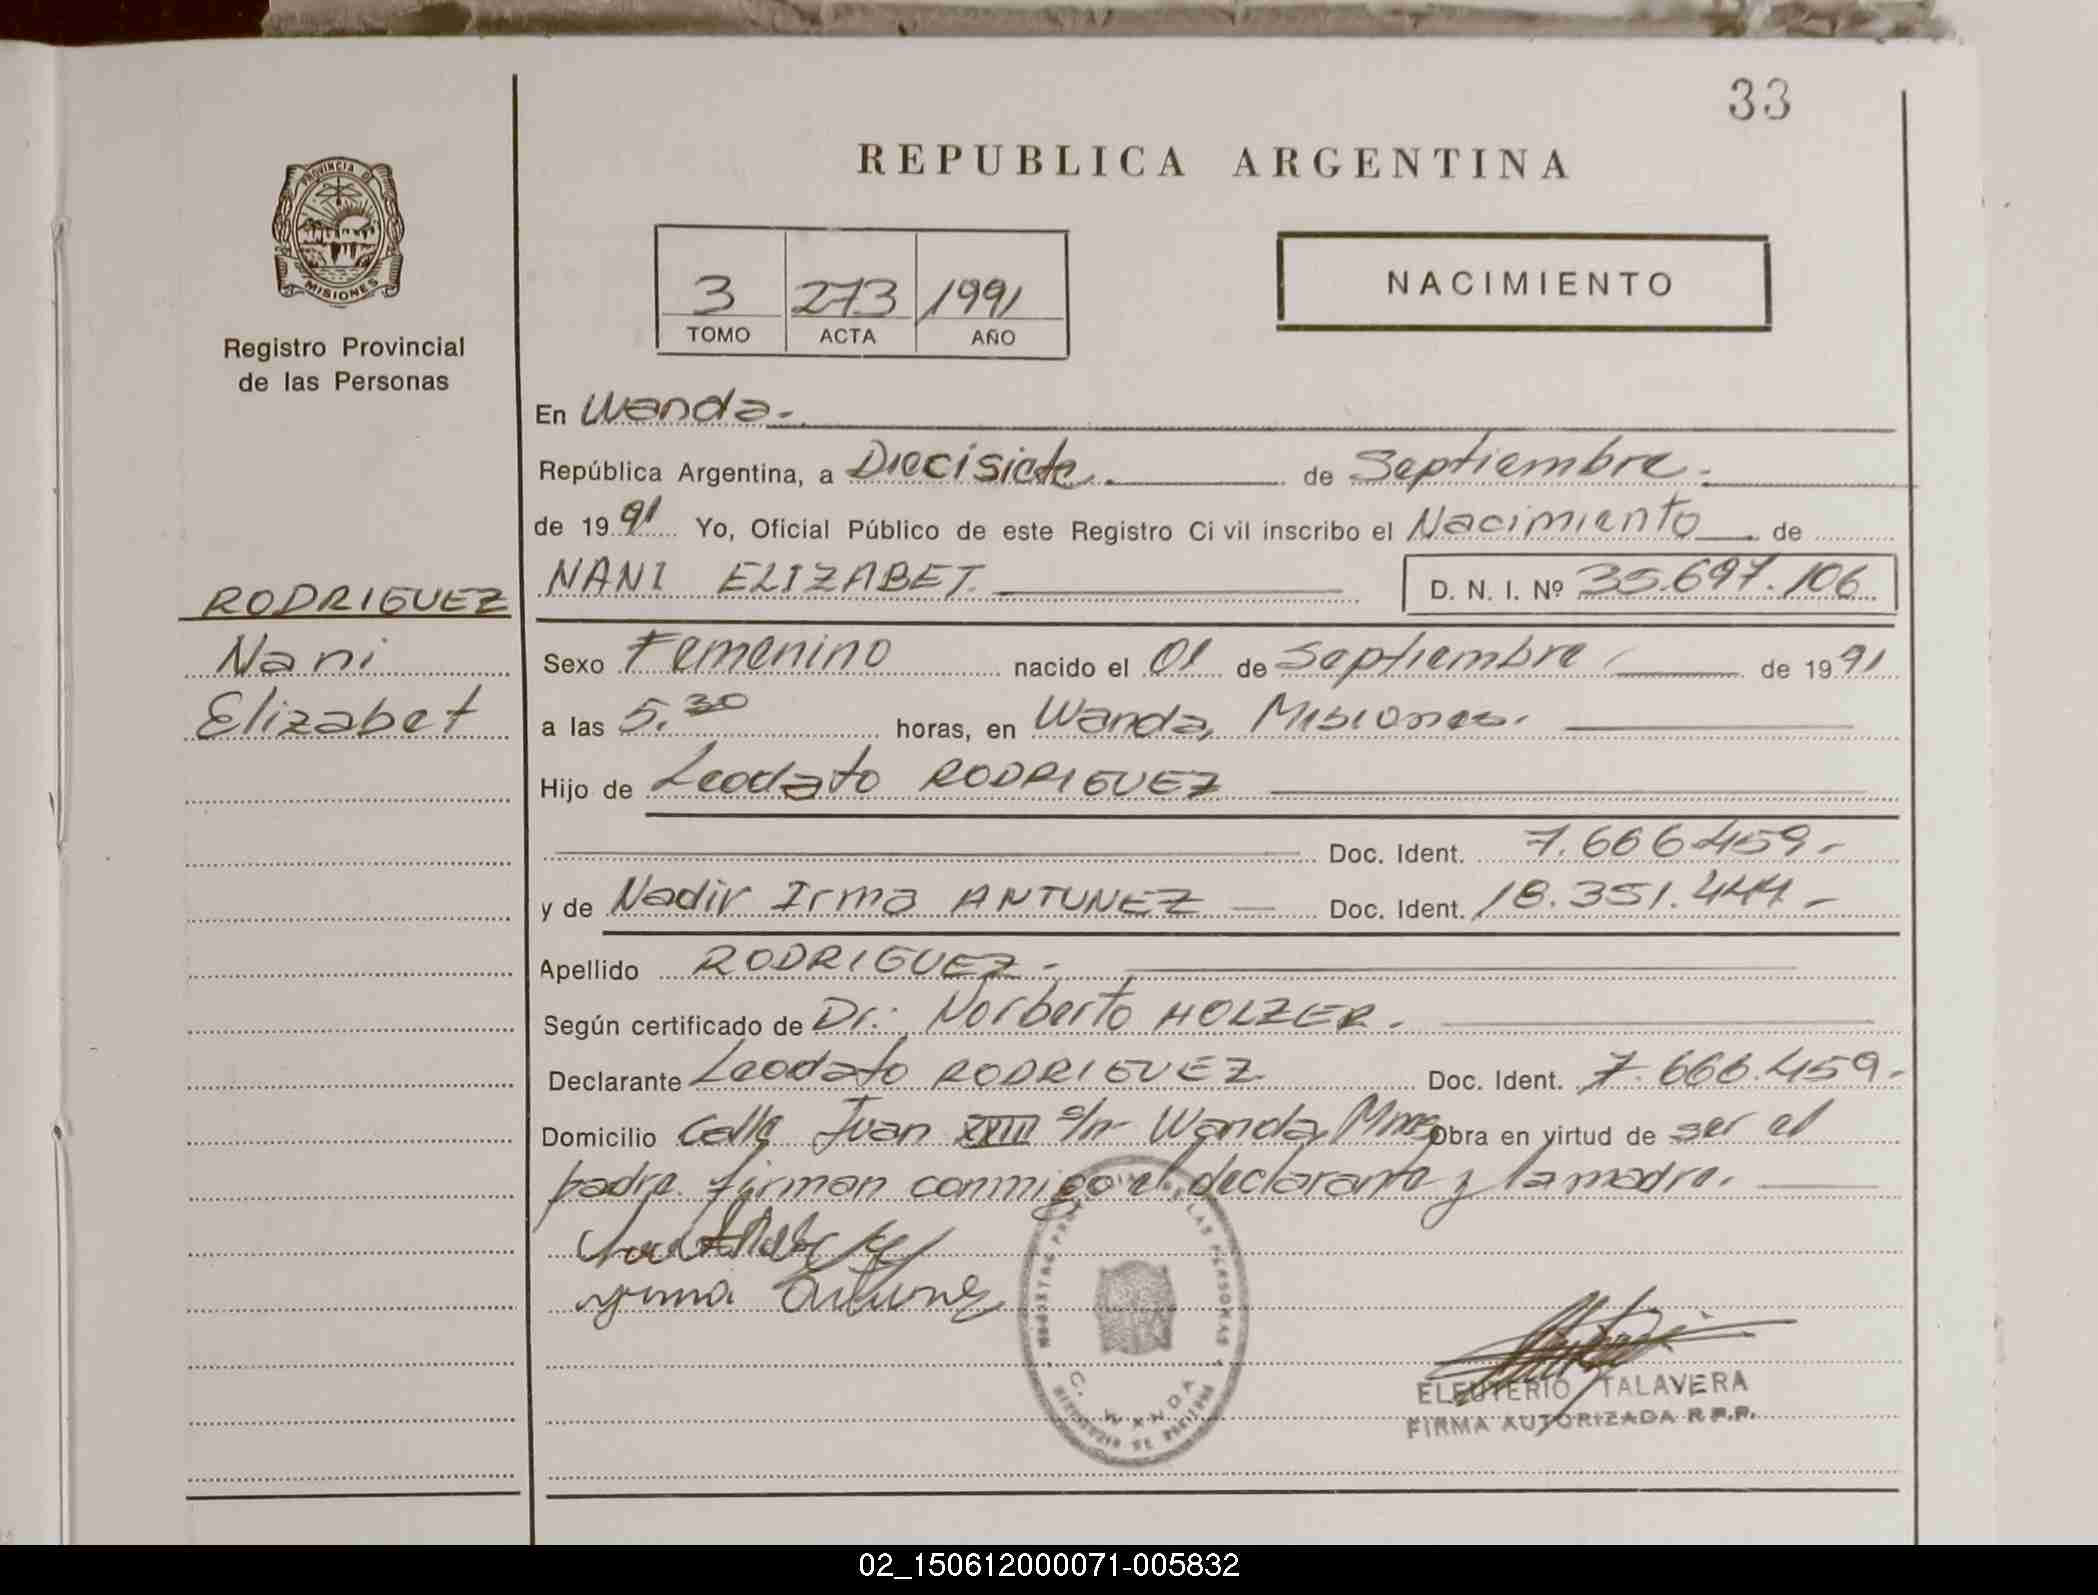 33
REPUBLICA ARGENTINA
PROVINCIA DE
MISIONES
Registro Provincial
de las Personas
3 273 1991
TOMO ACTA AÑO
NACIMIENTO
En Wanda.-
República Argentina, a Diecisiete. de Septiembre.
de 19 91 Yo, Oficial Público de este Registro Civil inscribo el Nacimiento de
RODRIGUEZ
Nani
Elizabet
NANI ELIZABET. D. N. I. Nº 35.697.106
Sexo Femenino nacido el 01 de Septiembre de 19 91
a las 5.30 horas, en Wanda, Misiones.
Hijo de Leodato RODRIGUEZ
Doc. Ident. 7.666.459.-
y de Nadir Irma ANTUNEZ Doc. Ident. 18.351.444.-
Apellido RODRIGUEZ.-
Según certificado de Dr.: Norberto HOLZER.
Declarante Leodato RODRIGUEZ. Doc. Ident. 7.666.459.-
Domicilio Calle Juan XXIII s/n- Wanda, Mnes Obra en virtud de ser el
padre. firman conmigo el declarante y la madre.
C. WANDA
ELEUTERIO TALAVERA
FIRMA AUTORIZADA R.P.P.
02_150612000071-005832